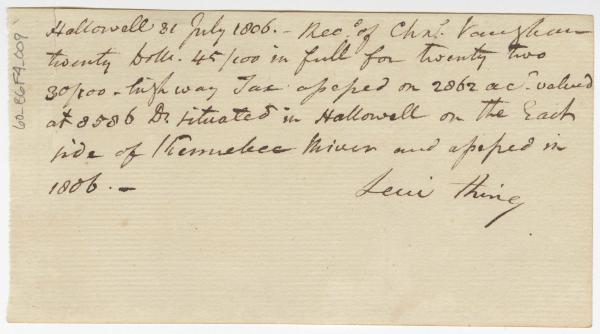 Hallowell 31 July 1806. - Recd. of Chas. Vaughan
twenty Dolls. 45/100 in full for twenty two
30/100 - high way Tax assessed on 2862 acs. valued
at 8586 Ds situated in Hallowell on the East
side of Kennebec River and assessed in
1806. -
Levi Thing
60-86F4-009